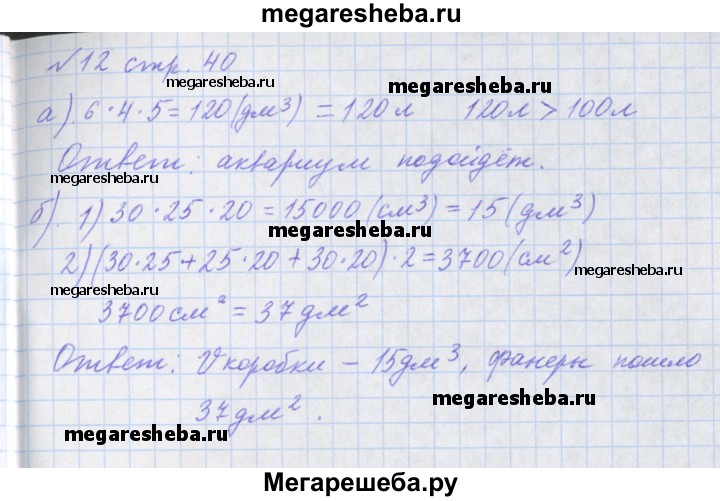 megaresheba.ru
№12 стр. 40
megaresheba.ru
megaresheba.ru
а). 6·4·5=120(дм³) = 120 л 120л > 100л
Ответ: аквариум подойдёт.
megaresheba.ru
megaresheba.ru
б). 1) 30·25·20=15000(см³)=15(дм³)
megaresheba.ru
2)(30·25+25·20+30·20)·2=3700(см²)
megaresheba.ru
megaresheba.ru
3700см²=37дм²
Ответ: V коробки – 15дм³, фанеры пошло
37дм².
megaresheba.ru
megaresheba.ru
Мегарешеба.ру